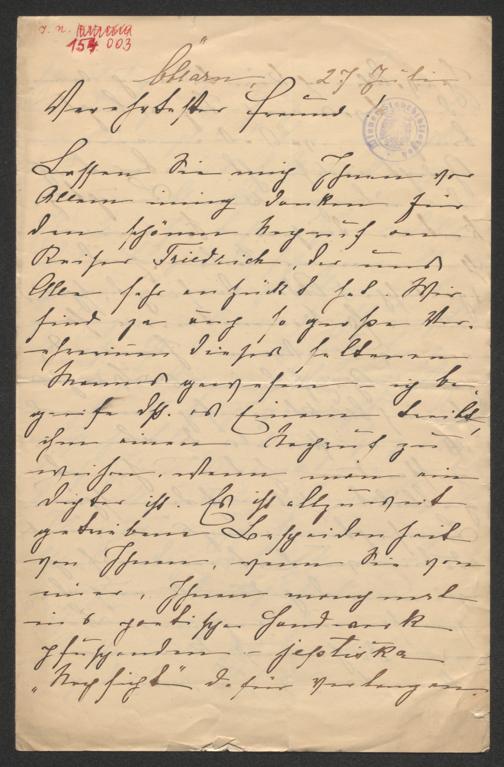 J. N.
154 003
Öblarn, 27 Juli
Verehrtester Freund!
Lassen Sie mich Ihnen vor
Allem innig danken für
den schönen Nachruf an
Kaiser Friedrich, der uns
Alle sehr entzückt hat. Wir
sind ja auch so große Ver-
ehrerinnen dieses seltenen
Mannes gewesen – ich be-
greife dß. es Einem treibt,
ihm einen Nachruf zu
weihen, wenn man ein
Dichter ist. Es ist allzuweit
getriebene Bescheidenheit
von Ihnen, wenn Sie von
mir, Ihnen manchmal
in's poetische Handwerk
pfuschenden –
„Nachsicht“ dafür verlangen.